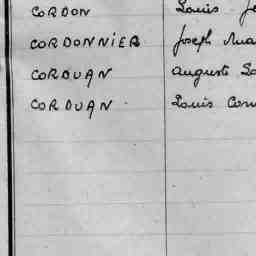 CORDON Louis
CORDONNIER Joseph
CORDUAN Auguste
CORDUAN Louis